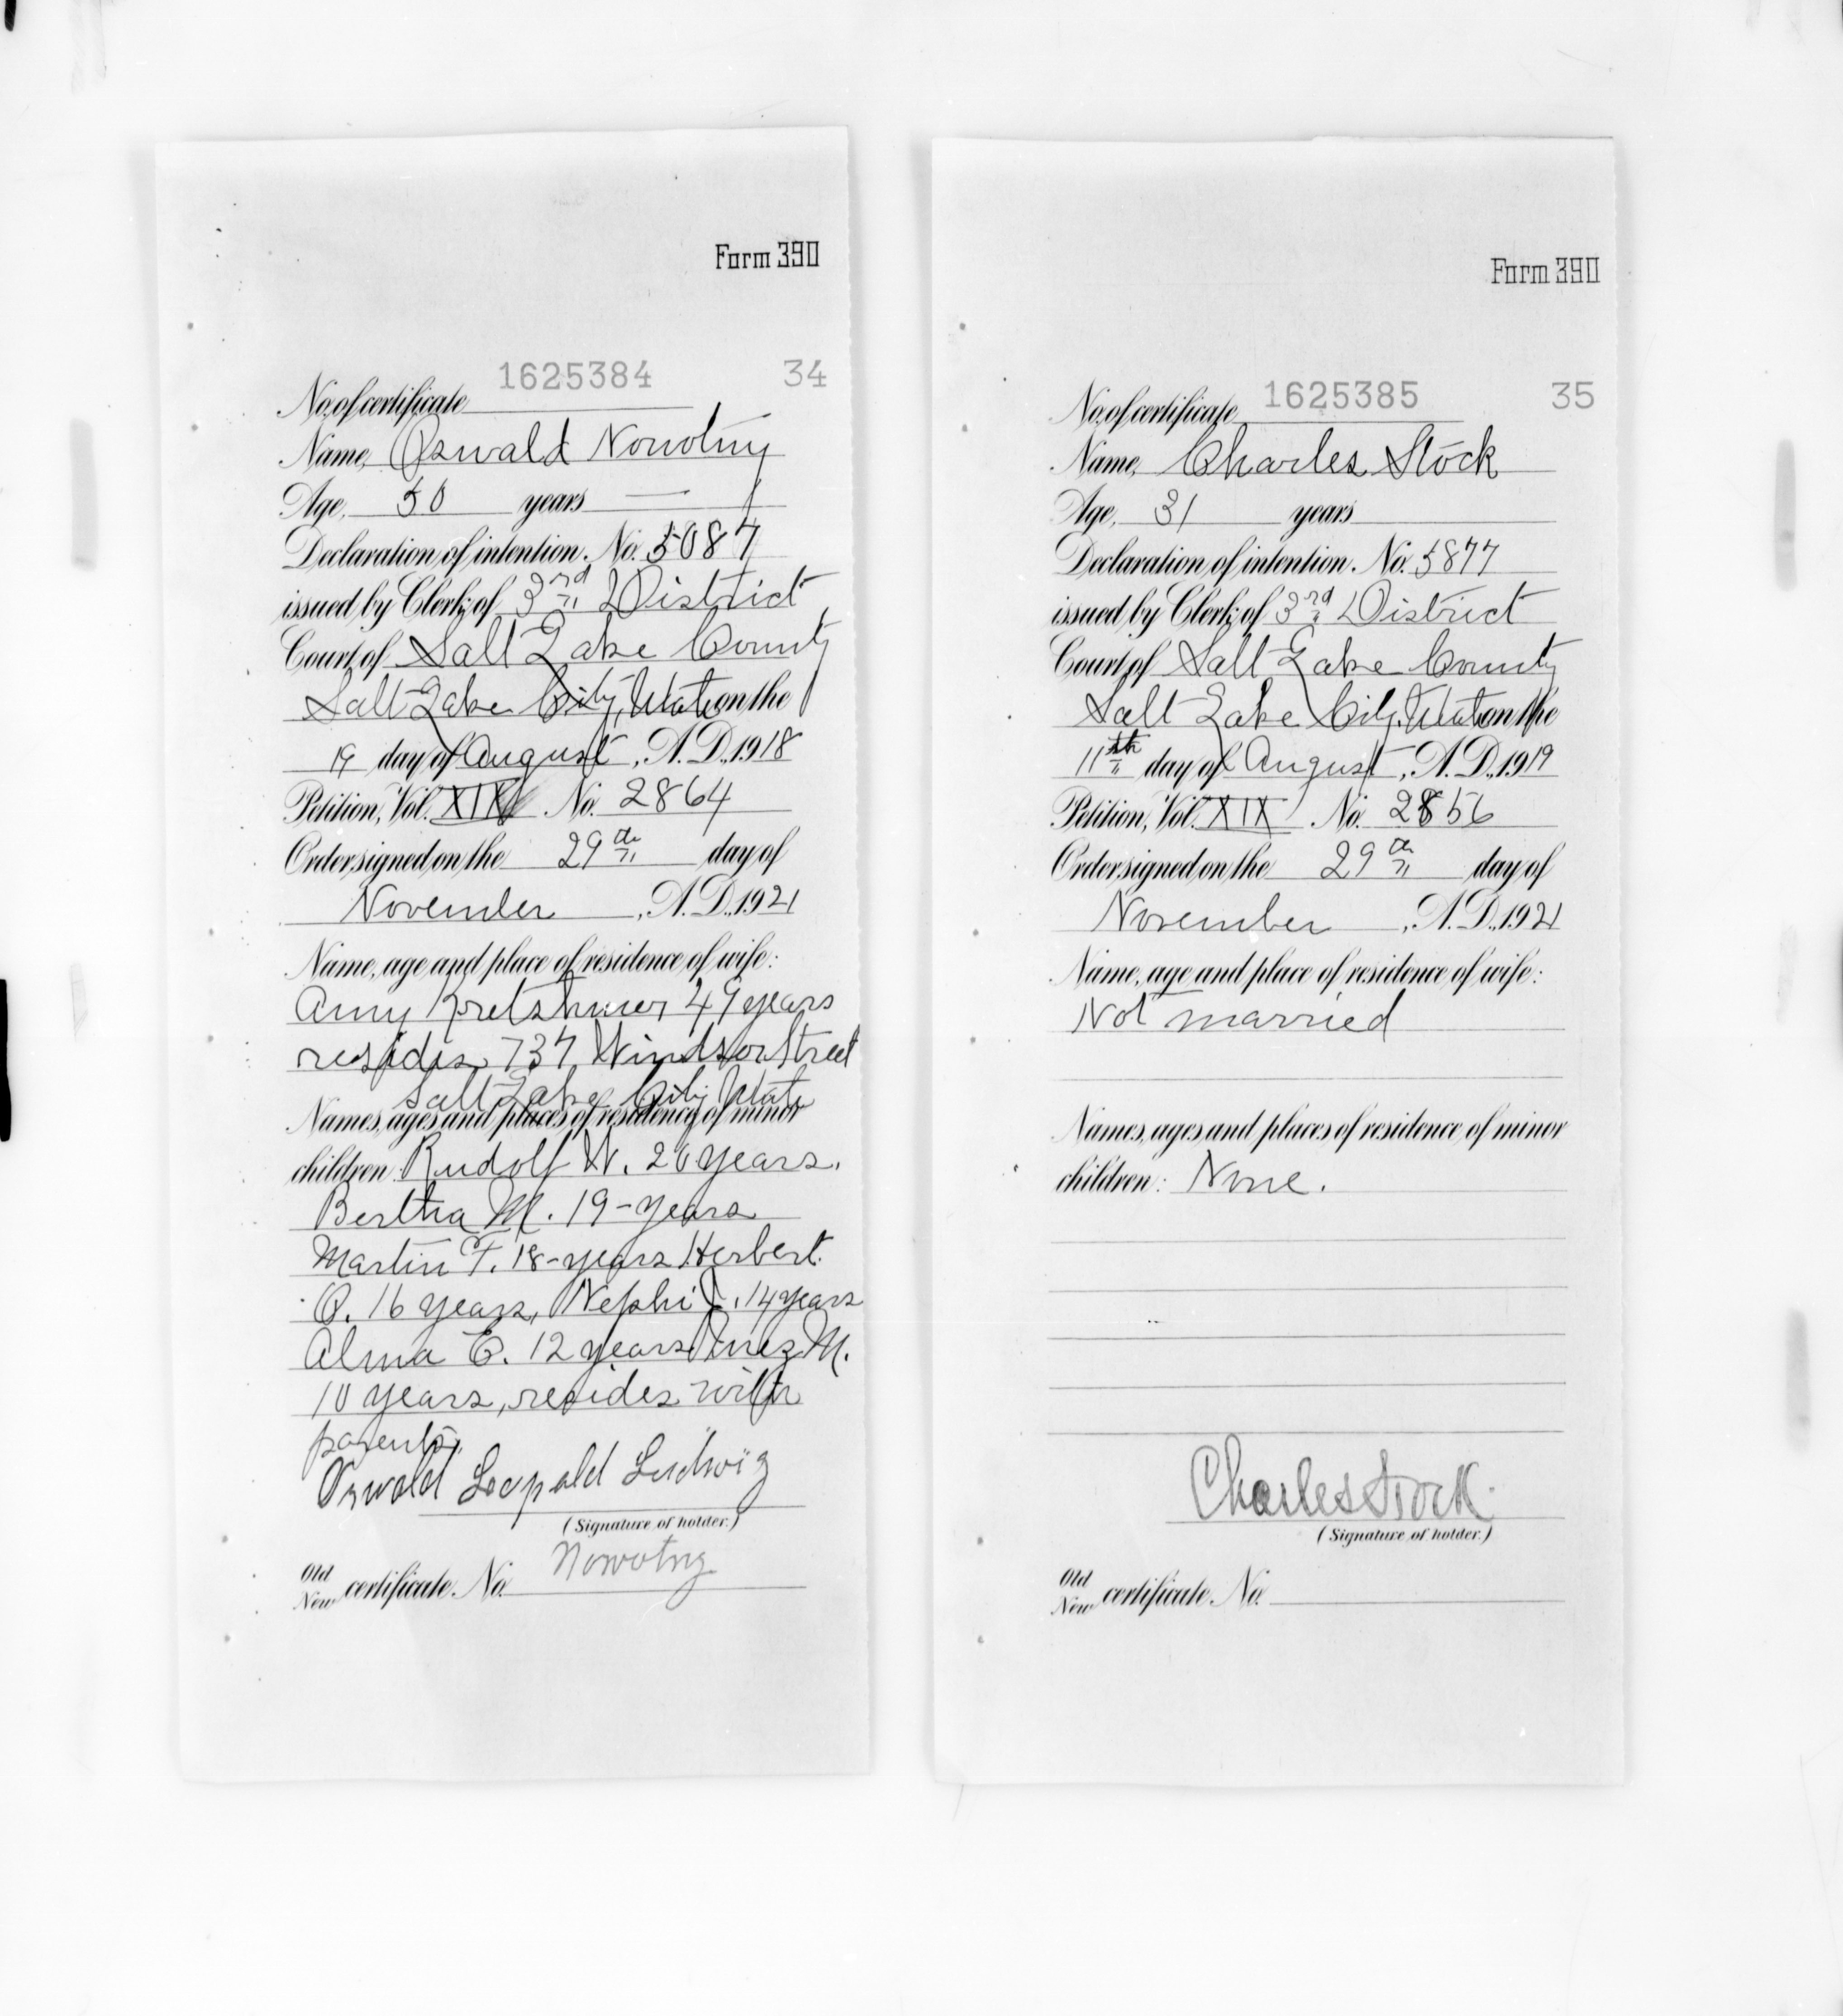 Form 390
1625384 34
No. of certificate
Name, Oswald Nowotny
Age, 50 years —
Declaration of intention. No. 5087
issued by Clerk of 3rd District
Court of Salt Lake County
Salt Lake City, Utah on the
19 day of August, A.D., 1918
Petition, Vol. XIX No. 2864
Order signed on the 29th day of
November, A.D., 1921
Name, age and place of residence of wife:
49 years
resides 737 Windsor Street
Salt Lake City Utah
Names, ages and places of residence of minor
children Rudolf W. 20 years.
Bertha M. 19-years
Martin F. 18-years Herbert
O. 16 years, Nephi J. 14 years
Alma E. 12 years Inez M.
10 years, resides with
parents.
Oswald Leopold Ludwig
(Signature of holder.)
Nowotny
Old
New certificate No.
Form 390
No. of certificate 1625385 35
Name, Charles Stock
Age, 31 years
Declaration of intention. No. 5877
issued by Clerk of 3rd District
Court of Salt Lake County
Salt Lake City, Utah on the
11th day of August, A.D., 1919
Petition, Vol. XIX No. 2856
Order signed on the 29th day of
November, A.D., 1921
Name, age and place of residence of wife:
Not married
Names, ages and places of residence of minor
children: None.
Charles Stock
(Signature of holder.)
Old
New certificate No.